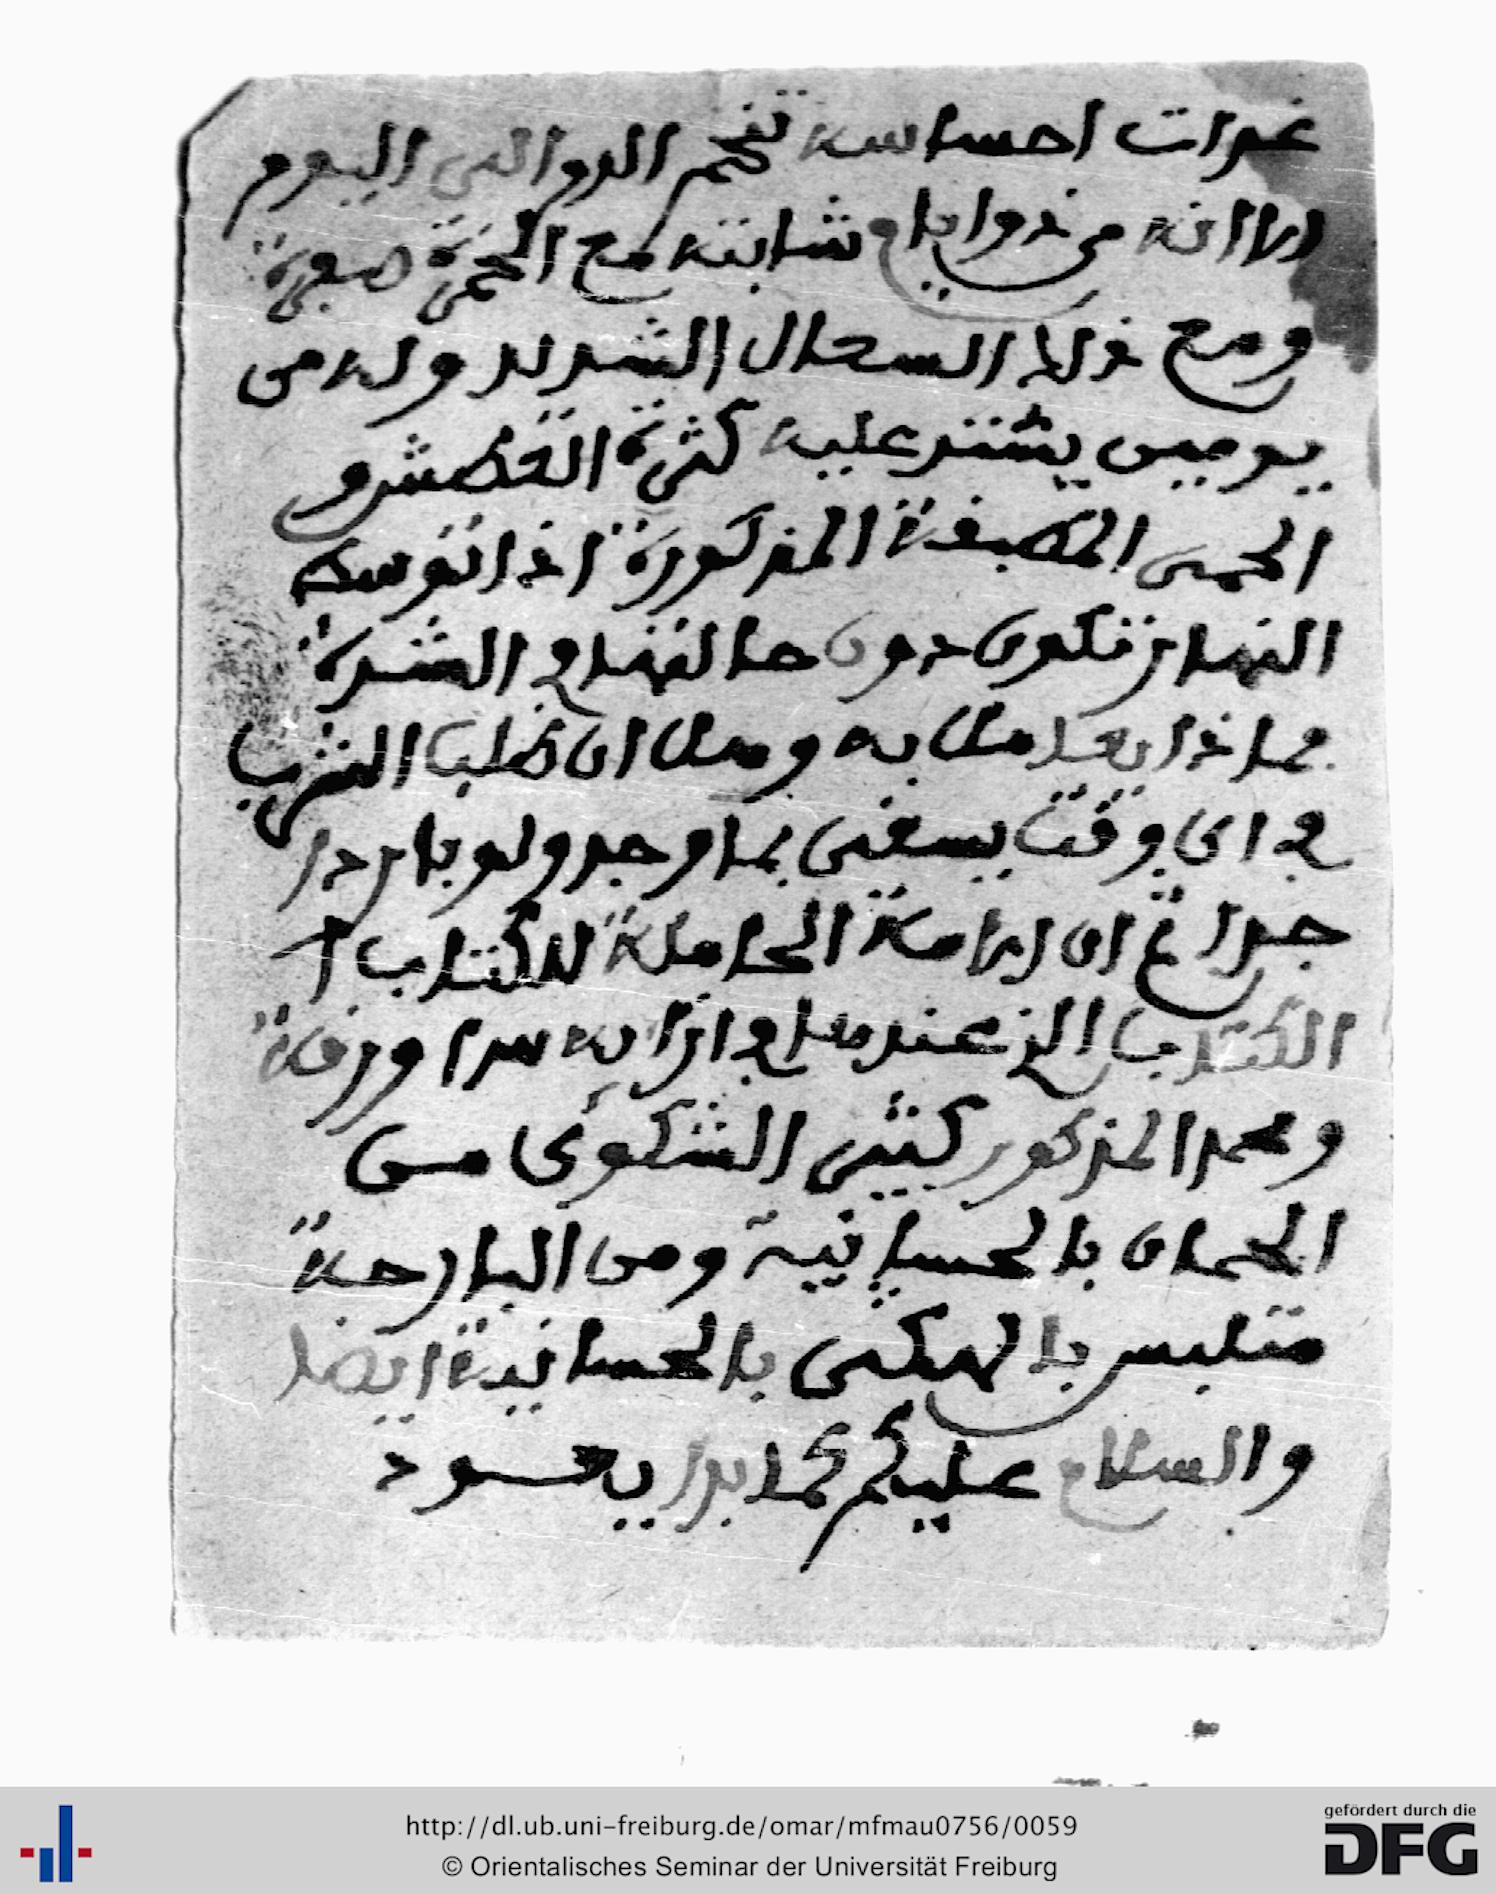 غدوات احساسه تفخم الدو الى اليوم
الا انه من ذوا شابته مع الحمى صعبة
ومع ذلك السعال الشديد وله من
يومين يشتد عليه كثرة العطش و
الحمى المطبقة المذكورة اذا توسط
النهار تكون دون حالتها في الشدة
فماذا يعامل به وهل ان طلب الشرب
في اى وقت يسقى بما وجد ولو باردا
جدا ان الامة الحاملة للكتاب
الكتاب عندها في ازا به سدا ورقة
ومحمد المذكور كثير الشكوى من
الحمان بالحسانية ومن البارحة
متلبس بالهبكى بالحسانية ايضا
والسلام عليكم محمد يحسود
http://dl.ub.uni-freiburg.de/omar/mfmau0756/0059
© Orientalisches Seminar der Universität Freiburg
gefördert durch die
DFG